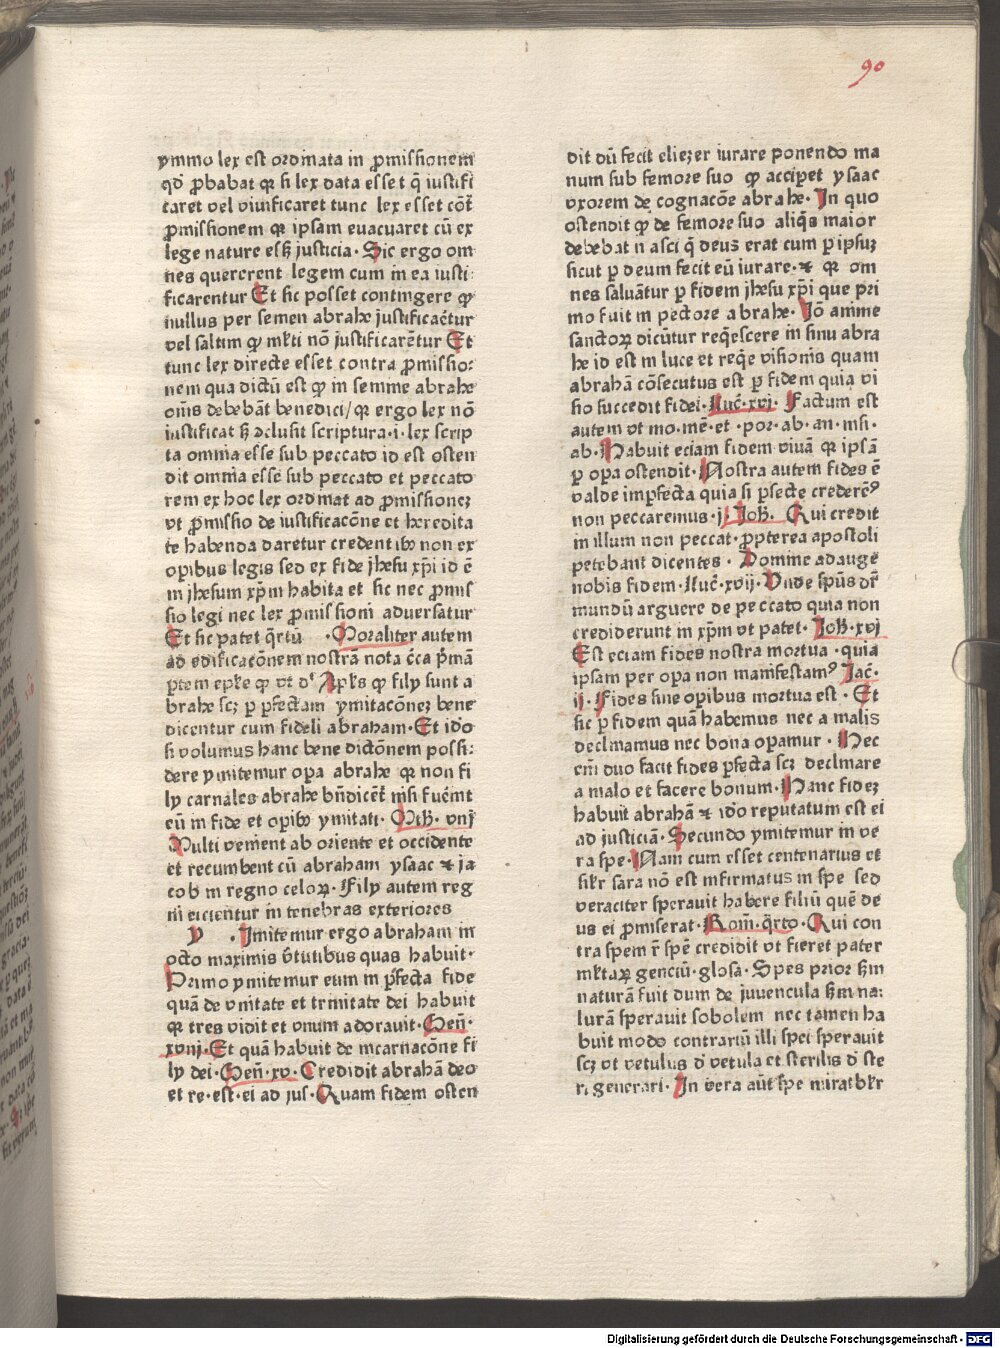 90
ymmo lex est ordinata in ꝓmissionem
qd̛ ꝓbabat qꝛ si lex data esset q̄ iustifi
caret vel viuificaret tunc lex esset cōt̄
ꝓmissionem qꝛ ipsam euacuaret cū ex
lege nature esſꝫ justicia· Sic ergo om
nes quererent legem cum in ea iusti
ficarentur Et sic posset contingere ꝙ
nullus per semen abrahe justificaētur
vel saltim ꝙ ml̄ti nō justificarētur Et
tunc lex directe esset contra ꝓmissio:
nem qua dictū est ꝙ in semine abrahe
om̄s debebāt benedici/qꝛ ergo lex nō
iustificat sꝫ ↄclusit scriptura·i·lex scrip
ta omnia esse sub peccato id est osten
dit omnia esse sub peccato et peccato
rem ex hoc lex ordinat ad ꝓmissionez
vt ꝓmissio de iustificacōne et heredita
te habenda daretur credentibꝰ non ex
operibus legis sed ex fide jhesu xp̄i id ē
in jhesum xp̄m habita et sic nec ꝓmis
sio legi nec lex ꝓmissioni aduersatur
Et sic patet q̄rtū ·Moraliter autem
ad edificacōnem nostrā nota c̄ca p̄mā
ꝑtem ep̄le ꝙ vt dt̄ Apl̄s ꝙ filij sunt a
brahe scꝫ ꝑ ꝑfectam ymitacōneꝫ bene
dicentur cum fideli abraham·Et idō
si volumus hanc bene dictōnem possi:
dere ymitemur oꝑa abrahe qꝛ non fi
lij carnales abrahe bn̄dicēt̄ nisi fuēint
eū in fide et opibꝰ ymitati· Mth̄· viij
Multi venient ab oriente et occidente
et recumbent cū abraham ysaac ⁊ ja
cob in regno celoꝝ·Filij autem reg
ni eicientur in tenebras exteriores
y ·Imitemur ergo abraham in
octo maximis v̄tutibus quas habuit·
Primo ymitemur eum in ꝑfecta fide
quā de vnitate et trinitate dei habuit
qꝛ tres vidit et vnum adorauit·Gen̄·
xviij·Et quā habuit de incarnacōne fi
lij dei·Gen̄·xv· Credidit abrahā deo
et re·est·ei ad jus·Quam fidem osten
dit dū fecit eliezer iurare ponendo ma
num sub femore suo ꝙ accipet ysaac
vxorem de cognacōe abrahe· In quo
ostendit ꝙ de femore suo aliq̄s maior
debebat nasci q̄ deus erat cum ꝑ ipsuꝫ
sicut ꝑ deum fecit eū iurare·⁊ qꝛ om
nes saluātur ꝑ fidem jhesu xp̄i que pri
mo fuit in pectore abrahe· Iō anime
sanctoꝝ dicūtur req̄escere in sinu abra
he id est in luce et req̄e visionis quam
abrahā cōsecutus est ꝑ fidem quia vi
sio succedit fidei·Luc̄·xvi· Factum est
autem vt mo·mē·et ·por·ab·an·in si·
ab·Habuit eciam fidem viuā qꝛ ipsā
ꝑ oꝑa ostendit·Nostra autem fides ē
valde imꝑfecta quia si ꝑfecte crederēꝰ
non peccaremus·j·Joh̄· Qui credit
in illum non peccat·ꝓpterea apostoli
petebant dicentes· Domine adauge
nobis fidem·Luc̄·xvij·Vnde spūs dr̄
mundū arguere de peccato quia non
crediderunt in xp̄m vt patet· Joh̄·xvj
Est eciam fides nostra mortua ·quia
ipsam per opa non manifestamꝰ Jac̄·
ij· Fides sine opibus mortua est · Et
sic ꝑ fidem quā habemus nec a malis
declinamus nec bona oꝑamur· Hec
em̄ duo facit fides ꝑfecta scꝫ declinare
a malo et facere bonum·Hanc fideꝫ
habuit abrahā ⁊ idō reputatum est ei
ad justiciā· Secundo ymitemur in ve
ra spe· Nam cum esset centenarius et
sil̄r sara nō est infirmatus in spe sed
veraciter sperauit habere filiū quē de
us ei ꝓmiserat·Rom̄·q̄rto·Qui con
tra spem ī spē credidit vt fieret pater
ml̄taꝝ genciū·glosa·Spes prior sm̄
naturā fuit dum de juuencula sm̄ na:
turā sperauit sobolem nec tamen ha
buit modo contrariū illi spei sperauit
scꝫ vt vetulus d̄ vetula et sterilis d̄ ste
ri generari· In vera aūt spe mirabl̄r
Digitalisierung gefördert durch die Deutsche Forschungsgemeinschaft - DFG